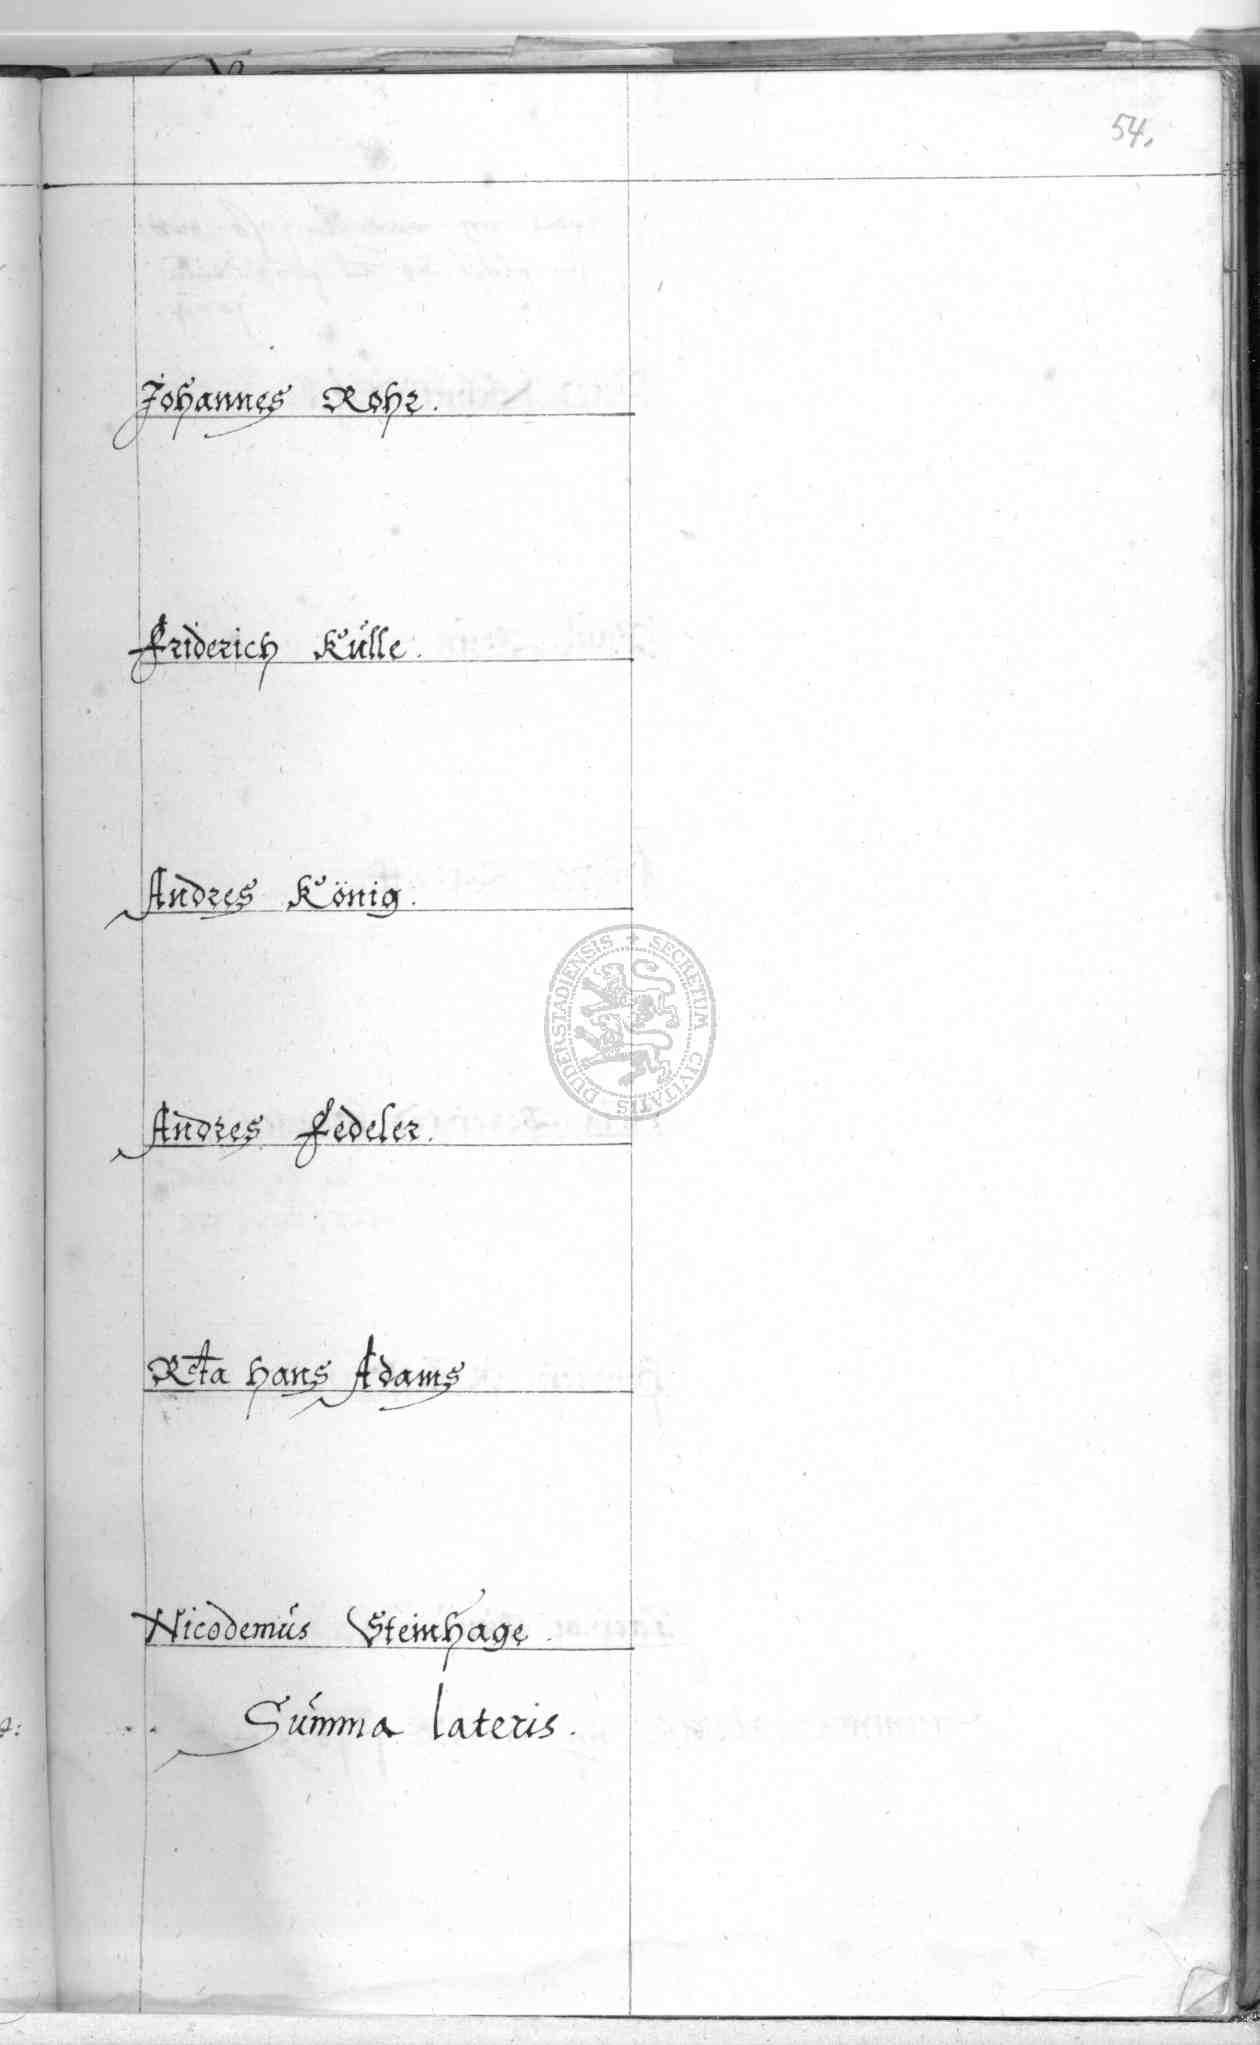 54.
Johannes Rohr.
Friderich Külle.
Andres König.
Andres Fedeler.
Rcta Hans Adams
Nicodemus Steinhage.
Summa lateris.
DUDERSTADIENSIS + SECRETUM CIVITATIS